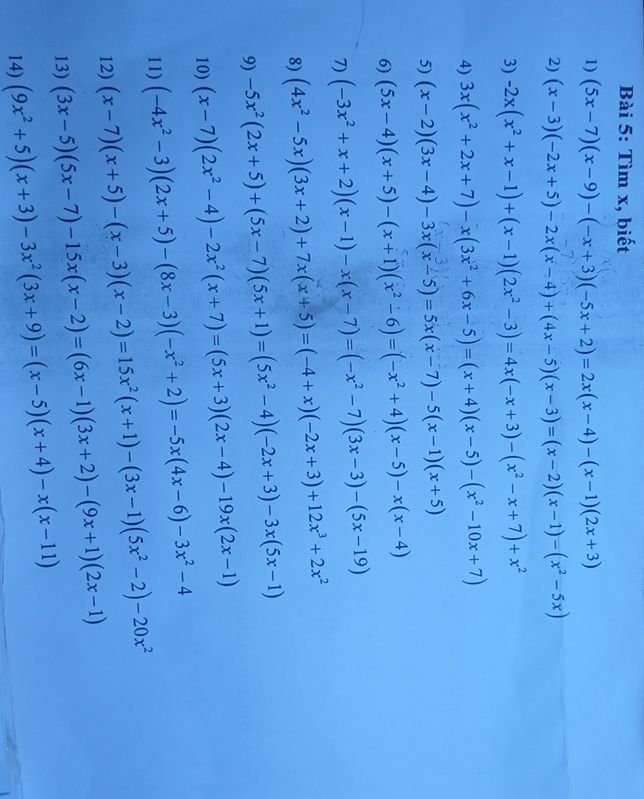 Bài 5: Tìm x, biết
1) (5x − 7)(x − 9) − (−x + 3)(−5x + 2) = 2x(x − 4) − (x − 1)(2x + 3)
2) (x − 3)(−2x + 5) − 2x(x − 4) + (4x − 5)(x − 3) = (x − 2)(x − 1) − (x² − 5x)
3) -2x(x² + x − 1) + (x − 1)(2x² − 3) = 4x(−x + 3) − (x² − x + 7) + x²
4) 3x(x² + 2x + 7) − x(3x² + 6x − 5) = (x + 4)(x − 5) − (x² − 10x + 7)
5) (x − 2)(3x − 4) − 3x(x − 5) = 5x(x − 7) − 5(x − 1)(x + 5)
6) (5x − 4)(x + 5) − (x + 1)(x² − 6) = (−x² + 4)(x − 5) − x(x − 4)
7) (−3x² + x + 2)(x − 1) − x(x − 7) = (−x² − 7)(3x − 3) − (5x − 19)
8) (4x² − 5x)(3x + 2) + 7x(x + 5) = (−4 + x)(−2x + 3) + 12x³ + 2x²
9) −5x²(2x + 5) + (5x − 7)(5x + 1) = (5x² − 4)(−2x + 3) − 3x(5x − 1)
10) (x − 7)(2x² − 4) − 2x²(x + 7) = (5x + 3)(2x − 4) − 19x(2x − 1)
11) (−4x² − 3)(2x + 5) − (8x − 3)(−x² + 2) = −5x(4x − 6) − 3x² − 4
12) (x − 7)(x + 5) − (x − 3)(x − 2) = 15x²(x + 1) − (3x − 1)(5x² − 2) − 20x²
13) (3x − 5)(5x − 7) − 15x(x − 2) = (6x − 1)(3x + 2) − (9x + 1)(2x − 1)
14) (9x² + 5)(x + 3) − 3x²(3x + 9) = (x − 5)(x + 4) − x(x − 11)